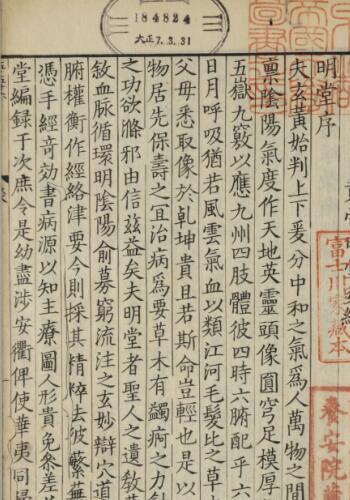 184824
大正7.3.31
明堂序
夫玄黄始判上下爰分中和之氣爲人萬物之間
禀陰陽氣度作天地英靈頭像圓穹足模厚
五嶽九竅以應九州四肢體彼四時六腑配乎六
日月呼吸猶若風雲氣血以類江河毛髮比之草
父母悉取像於乾坤貴且若斯命豈輕也是以
物居先保壽之宜治病爲要草木有蠲痾之力
之功欲滌邪由信兹益矣夫明堂者聖人之遺教
敘血脉循環明陰陽俞募窮流注之玄妙辯穴道
腑權衡作經絡津要今則採其精粹去彼蘩蕪
憑手經竒効書病源以知主療圖人形貴免參差
堂編録于次庶令是幼盡涉安衢俾使華夷同歸
富士川家藏本
養安院藏